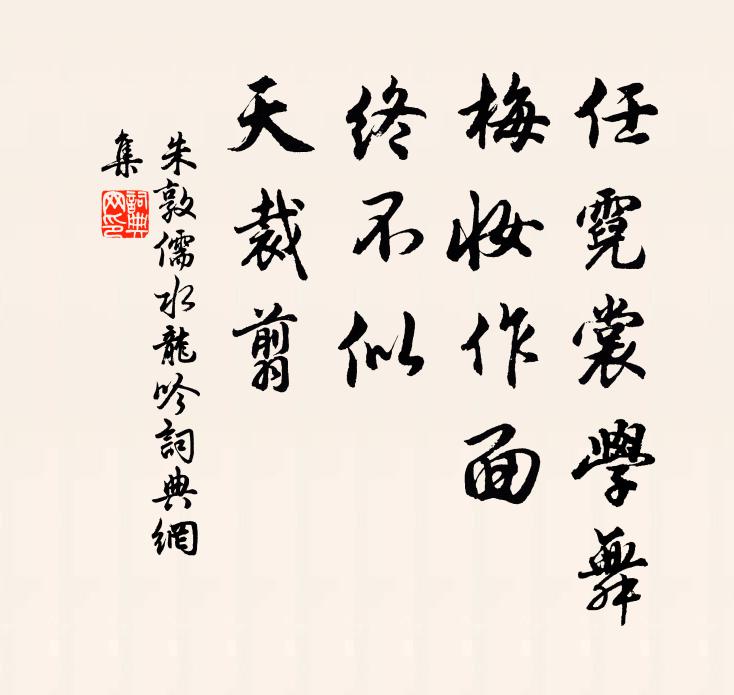 任霓裳學舞
梅妝作面
終不似
天裁翦
朱敦儒水龍吟詞典網
集
詞典
网印